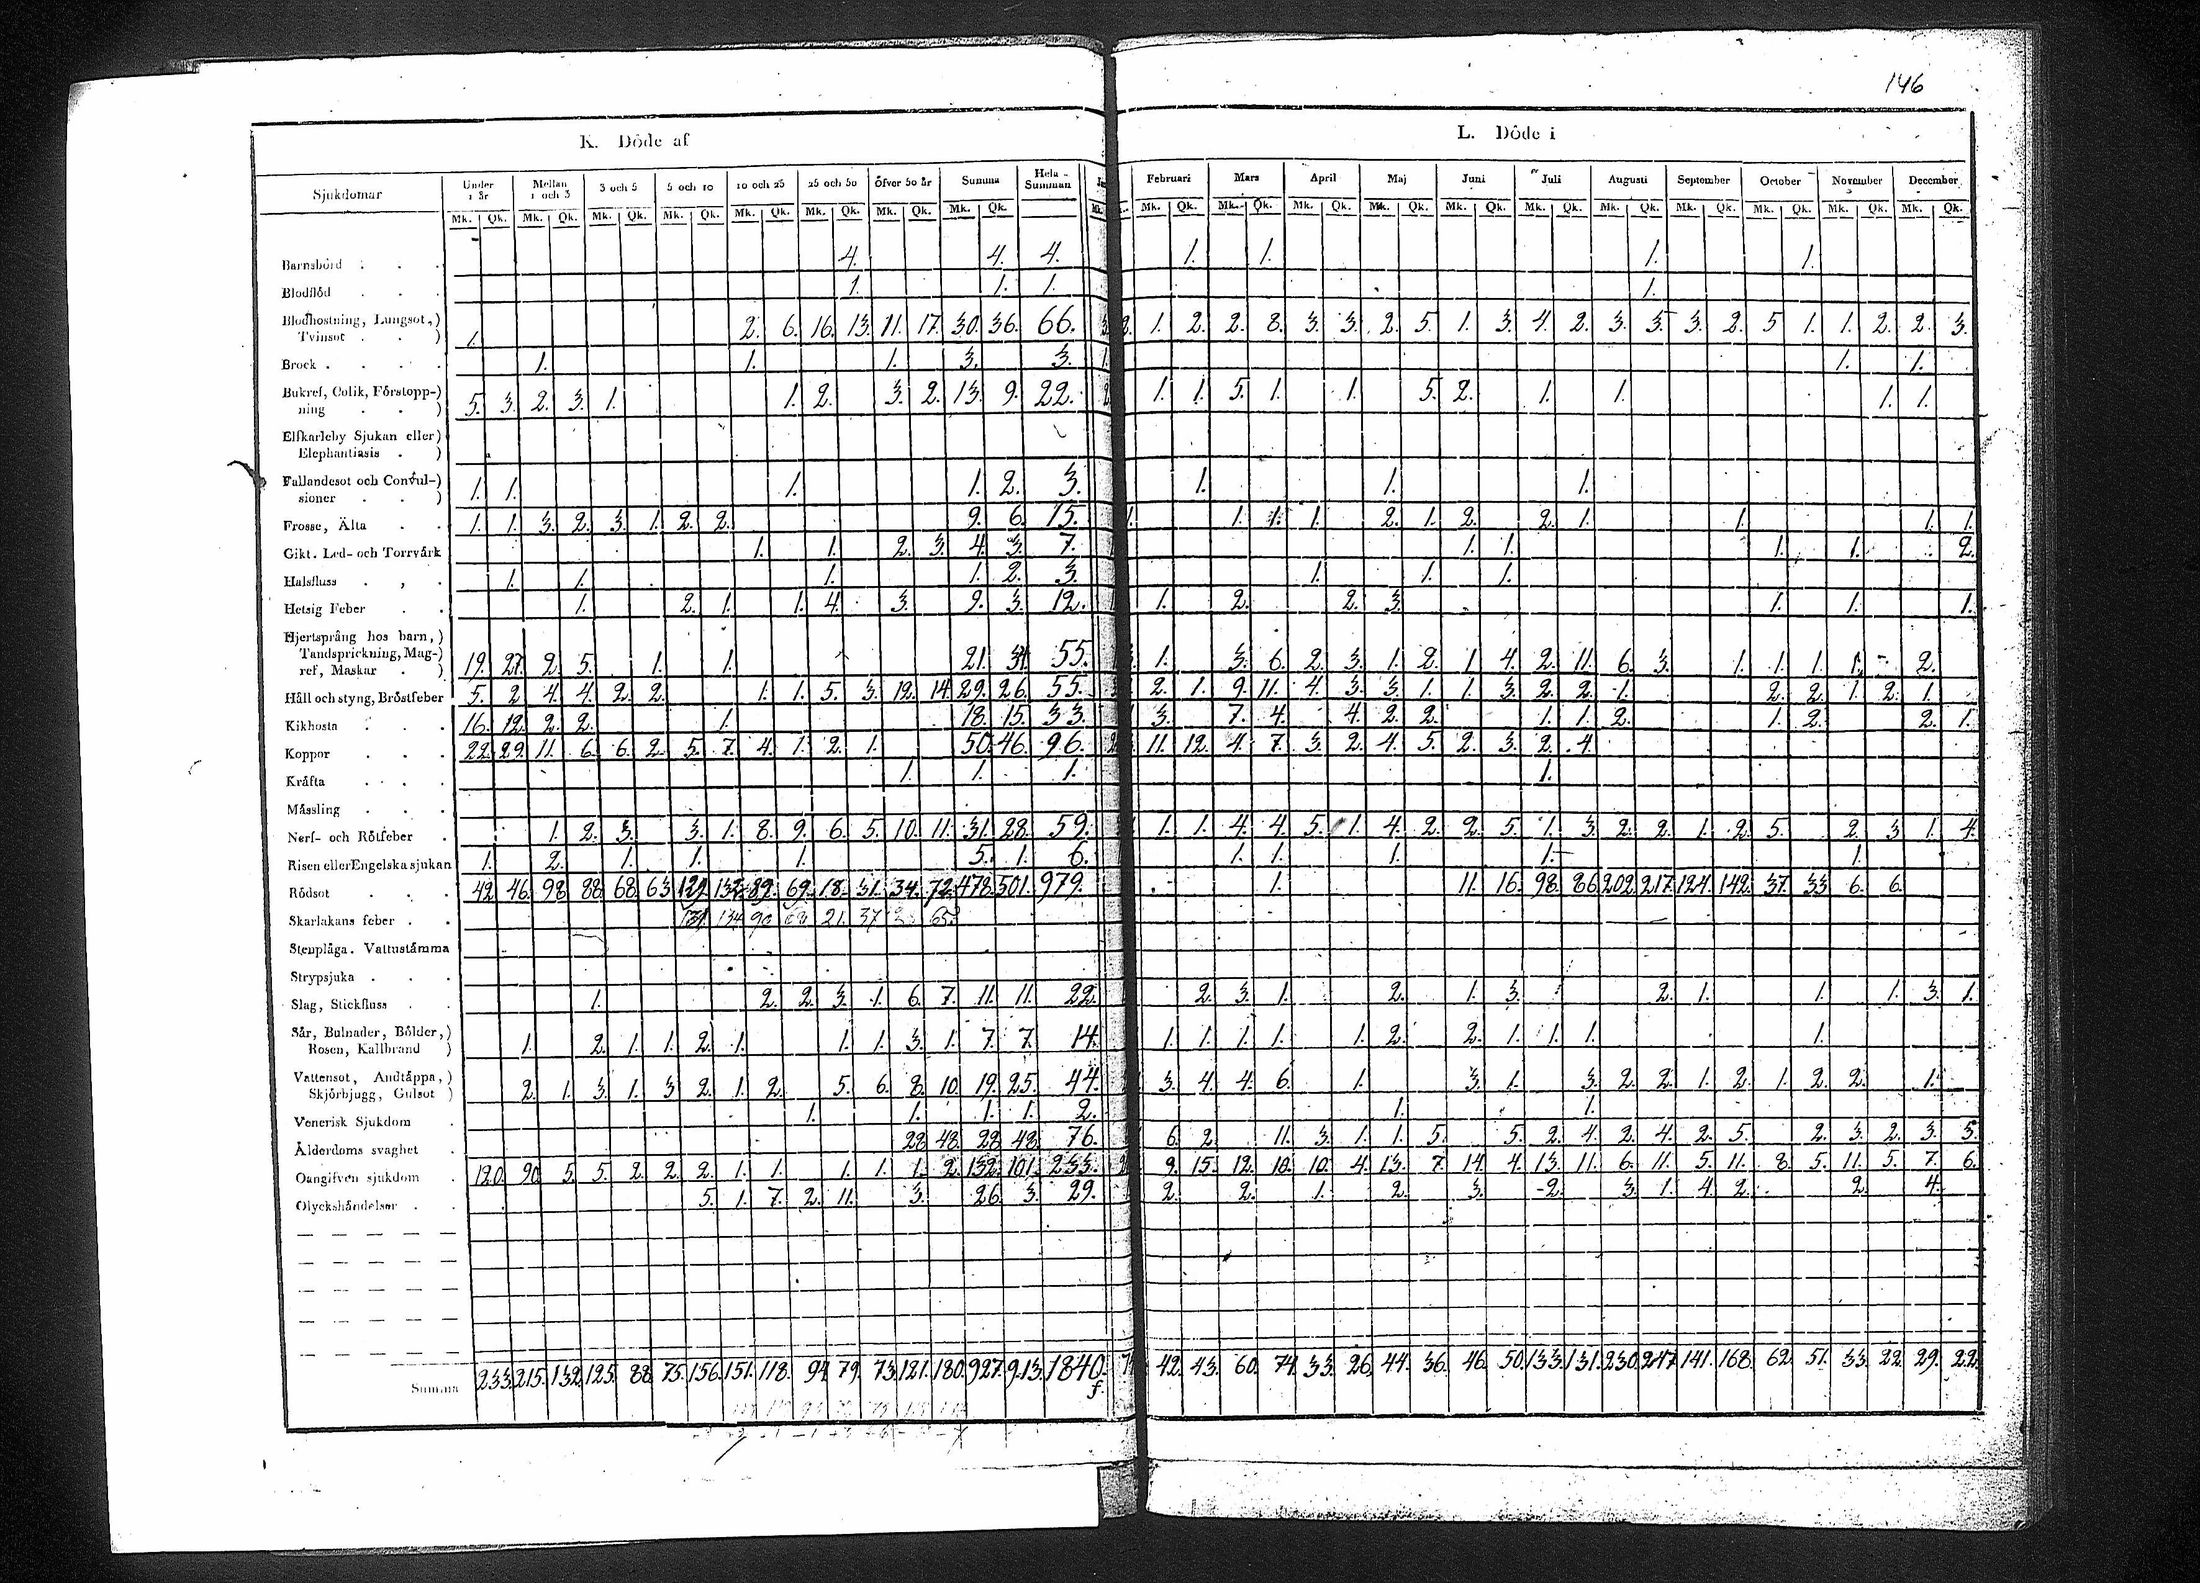 146
K. Döde af
L. Döde i
Sjukdomar Under 1 år Mellan 1 och 3 3 och 5 5 och 10 10 och 25 25 och 50 Öfver 50 år Summa Hela Summan Februari Mars April Maj Juni Juli Augusti September October November December
Mk. Qk. Mk. Qk. Mk. Qk. Mk. Qk. Mk. Qk. Mk. Qk. Mk. Qk. Mk. Qk. Mk. Qk. Mk. Qk. Mk. Qk. Mk. Qk. Mk. Qk. Mk. Qk. Mk. Qk. Mk. Qk. Mk. Qk. Mk. Qk. Mk. Qk.
Barnsbörd . . . 4. 4. 4. 1. 1. 1. 1.
Blodflöd . . . 1. 1. 1. 1.
Blodhostning, Lungsot,)
Tvinsot . . ) 1. 2. 6. 16. 13. 11. 17. 30. 36. 66. 3. 2. 1. 2. 2. 8. 3. 3. 2. 5. 1. 3. 4. 2. 3. 5. 3. 2. 5 1. 1. 2. 2. 3.
Brock . . . . 1. 1. 1. 3. 3. 1. 1. 1.
Bukref, Colik, Förstopp-)
ning . . ) 5. 3. 2. 3. 1. 1. 2. 3. 2. 13. 9. 22. 2. 1. 1. 5. 1. 1. 5. 2. 1. 1. 1. 1.
Elfkarleby Sjukan eller)
Elephantiasis . )
Fallandesot och Convul-)
sioner . . ) 1. 1. 1. 1. 2. 3. 1. 1. 1.
Frosse, Älta . . 1. 1. 3. 2. 3. 1. 2. 2. 9. 6. 15. 1. 1. 1. 1. 2. 1. 2. 2. 1. 1. 1. 1.
Gikt. Led- och Torrvärk 1. 1. 2. 3. 4. 3. 7. 1. 1. 1. 1. 2.
Halsfluss . , . 1. 1. 1. 1. 2. 3. 1. 1. 1.
Hetsig Feber . . 1. 2. 1. 1. 4. 3. 9. 3. 12. 1. 2. 2. 3. 1. 1. 1.
Hjertsprång hos barn,)
Tandsprickning, Mag-)
ref, Maskar . ) 19. 27. 2. 5. 1. 1. 21. 34. 55. 1. 3. 6. 2. 3. 1. 2. 1 4. 2. 11. 6. 3. 1. 1. 1. 1. 2.
Håll och styng, Bröstfeber 5. 2 4. 4. 2. 2. 1. 1. 5. 3. 12. 14. 29. 26. 55. 2. 1. 9. 11. 4. 3. 3. 1. 1. 3. 2. 2. 1. 2. 2. 1. 2. 1.
Kikhosta . . . 16. 12. 2. 2. 1. 18. 15. 33. 3. 7. 4. 4. 2. 2. 1. 1. 2. 1. 2. 2. 1.
Koppor . . . 22. 29. 11. 6. 6. 2. 5. 7. 4. 1. 2. 1. 50. 46. 96. 11. 12. 4. 7. 3. 2. 4. 5. 2. 3. 2. 4.
Kräfta . . . 1. 1. 1. 1.
Mässling . . .
Nerf- och Rötfeber . 1. 2. 3. 3. 1. 8. 9. 6. 5. 10. 11. 31. 28. 59. 1. 1. 4. 4. 5. 1. 4. 2. 2. 5. 1. 3. 2. 2. 1. 2. 5. 2. 3 1. 4.
Risen eller Engelska sjukan 1. 2. 1. 1. 1. 5. 1. 6. 1. 1. 1. 1. 1.
Rödsot . . . 42 46. 98 88. 68. 63 129. 132. 89. 69. 18. 31. 34. 72. 478. 501. 979. 1. 11. 16. 98. 86. 202. 217. 124. 142. 37. 33 6. 6.
Skarlakans feber . . 134 90 21. 37 65.
Stenplåga. Vattustämma
Strypsjuka . . .
Slag, Stickfluss . . 1. 2. 2. 3. 1. 6. 7. 11. 11. 22. 2. 3. 1. 2. 1. 3. 2. 1. 1. 1. 3. 1.
Sår, Bulnader, Bölder,)
Rosen, Kallbrand ) 1. 2. 1. 1. 2. 1. 1. 1. 3. 1. 7. 7. 14. 1. 1. 1. 1. 1. 2. 2. 1. 1. 1. 1.
Vattensot, Andtäppa,)
Skjörbjugg, Gulsot ) 2. 1. 3. 1. 3 2. 1. 2. 5. 6. 8. 10. 19. 25. 44. 3. 4. 4. 6. 1. 3. 1. 3. 2. 2. 1. 2. 1. 2. 2. 1.
Venerisk Sjukdom . 1. 1. 1. 1. 2. 1. 1.
Ålderdoms svaghet . 28 48. 28. 48. 76. 6. 2. 11. 3. 1. 1. 5. 5. 2. 4. 2. 4. 2. 5. 2. 3. 2. 3. 5.
Oangifven sjukdom . 120. 90. 5. 5. 2. 2. 2. 1. 1. 1. 1. 1. 2. 132. 101. 233. 9. 15. 12. 10. 10. 4. 13. 7. 14. 4. 13. 11. 6. 11. 5. 11. 8. 5. 11. 5. 7. 6.
Olyckshändelser . . 5. 1. 7. 2. 11. 3. 26. 3. 29. 2. 2. 1. 2. 3. 2. 3. 1. 4. 2. 2. 4.
Summa 233. 215. 132. 125. 88. 75. 156. 151. 118. 94. 79. 73. 121. 180. 927. 913. 1840. 42. 43. 60. 74. 33. 26. 44. 36. 46. 50. 133. 131. 230. 247. 141. 168. 62. 51. 33. 22. 29. 22.